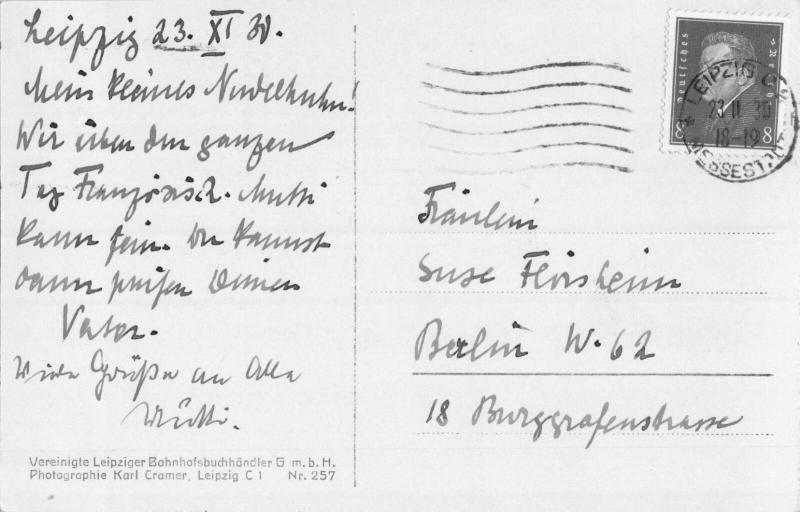 Leipzig 23. XI 30.
Mein kleines Nudelhuhn!
Wir üben den ganzen
Tag Französisch. Mutti
kann fein. Du kannst
dann prüfen Deinen
Vater.
Viele Grüße an Alle
Mutti.
Vereinigte Leipziger Bahnhofsbuchhändler G m. b. H.
Photographie Karl Cramer, Leipzig C 1 Nr. 257
Deutsches Reich
8 8
LEIPZIG C
23 11 30
18-19
* MESSEST
Fräulein
Suse Florsheim
Berlin W. 62
18 Burggrafenstrasse